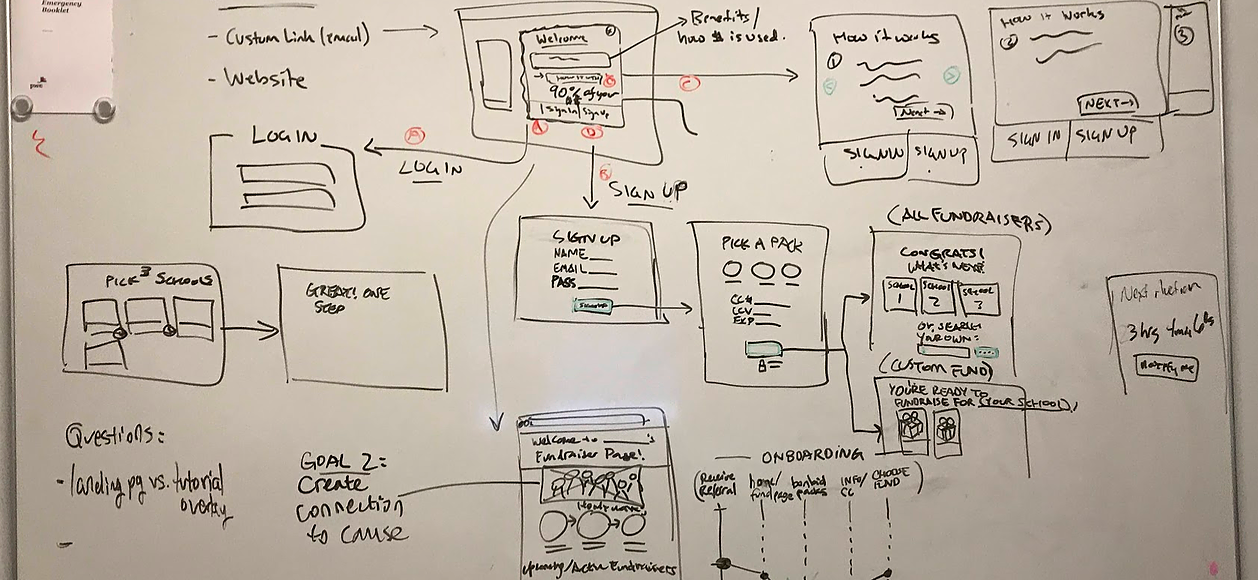 Emergency
Booklet
pwc
- Custom Link (email)
- Website
Welcome
90% of your
sign in | sign up
Benefits/
how $ is used.
C
A
D
B
How it works
1
Next →
SIGN IN | SIGN UP
How it Works
2
NEXT →
SIGN IN | SIGN UP
3
LOGIN
A
LOGIN
SIGN UP
SIGN UP
NAME
EMAIL
PASS
SIGN UP
PICK A PACK
CC#
CCV
EXP
(ALL FUNDRAISERS)
CONGRATS!
WHAT'S NEXT?
SCHOOL
1
SCHOOL
2
SCHOOL
3
OR, SEARCH
YOUR OWN:
(CUSTOM FUND)
YOU'RE READY TO
FUNDRAISE FOR (YOUR SCHOOL)!
Next auction
3 hrs 4 min 6s
NOTIFY ME
PICK 3 SCHOOLS
GREAT! ONE
STEP
Questions:
- landing pg vs. tutorial
overlay
-
GOAL 2:
Create
connection
to cause
Welcome to ______'s
Fundraiser Page!
How it works
Upcoming/Active Fundraisers
ONBOARDING
(Receive
Referral
home/
fund page
bonbid
packs
INFO/
CC
CHOOSE
FUND)